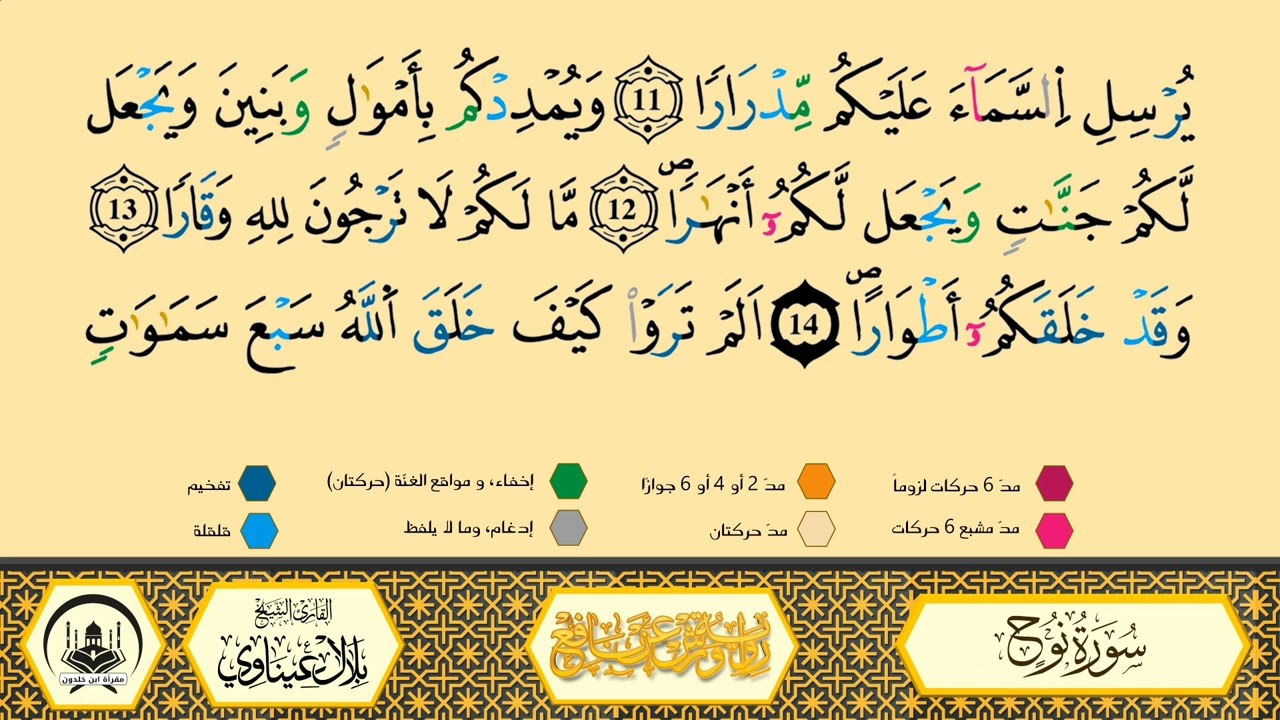 يُرْسِلِ اِ۬لسَّمَآءَ عَلَيْكُم مِّدْرَارًا 11 وَيُمْدِدْكُم بِأَمْوَٰلٍ وَبَنِينَ وَيَجْعَل
لَّكُمْ جَنَّٰتٍ وَيَجْعَل لَّكُمُۥٓ أَنْهَٰرًاۖ 12 مَّا لَكُمْ لَا تَرْجُونَ لِلهِ وَقَارًا 13
وَقَدْ خَلَقَكُمُۥٓ أَطْوَارًاۖ 14 اَلَمْ تَرَوْاْ كَيْفَ خَلَقَ اَ۬للَّهُ سَبْعَ سَمَٰوَٰتٍ
مدّ 6 حركات لزوماً مدّ 2 أو 4 أو 6 جوازًا إخفاء، و مواقع الغنّة (حركتان) تفخيم
مدّ مشبع 6 حركات مدّ حركتان إدغام، وما لا يلفظ قلقلة
سُورَةُ نُوحٍ
رواية ورش عن نافع
القارئ الشيخ
بلال عيناوي
مقرأة ابن خلدون